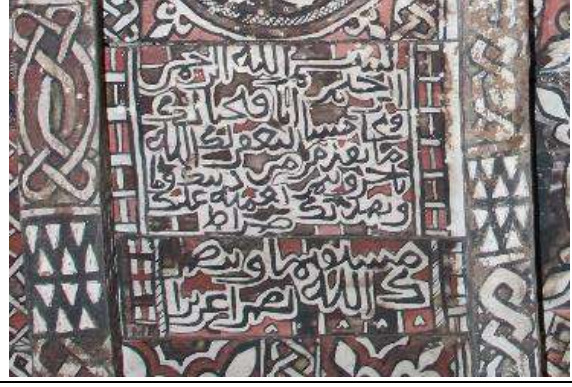 بسم الله الرحمن
الرحيم انا فتحنا لك
فتحا مبينا ليغفر لك الله
ما تقدم من ذنبك وما
تاخر ويتم نعمته عليك
ويهديك صراطا
مستقيما وينصر
ك الله نصرا عزيزا